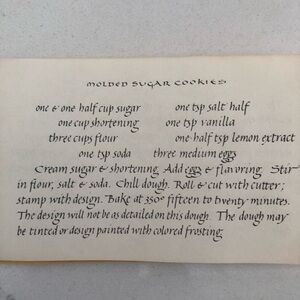 MOLDED SUGAR COOKIES
one & one half cup sugar one tsp salt half
one cup shortening one tsp vanilla
three cups flour one-half tsp lemon extract
one tsp soda three medium eggs
Cream sugar & shortening. Add eggs & flavoring. Stir
in flour, salt & soda. Chill dough. Roll & cut with cutter;
stamp with design. Bake at 350° fifteen to twenty minutes.
The design will not be as detailed on this dough. The dough may
be tinted or design painted with colored frosting.